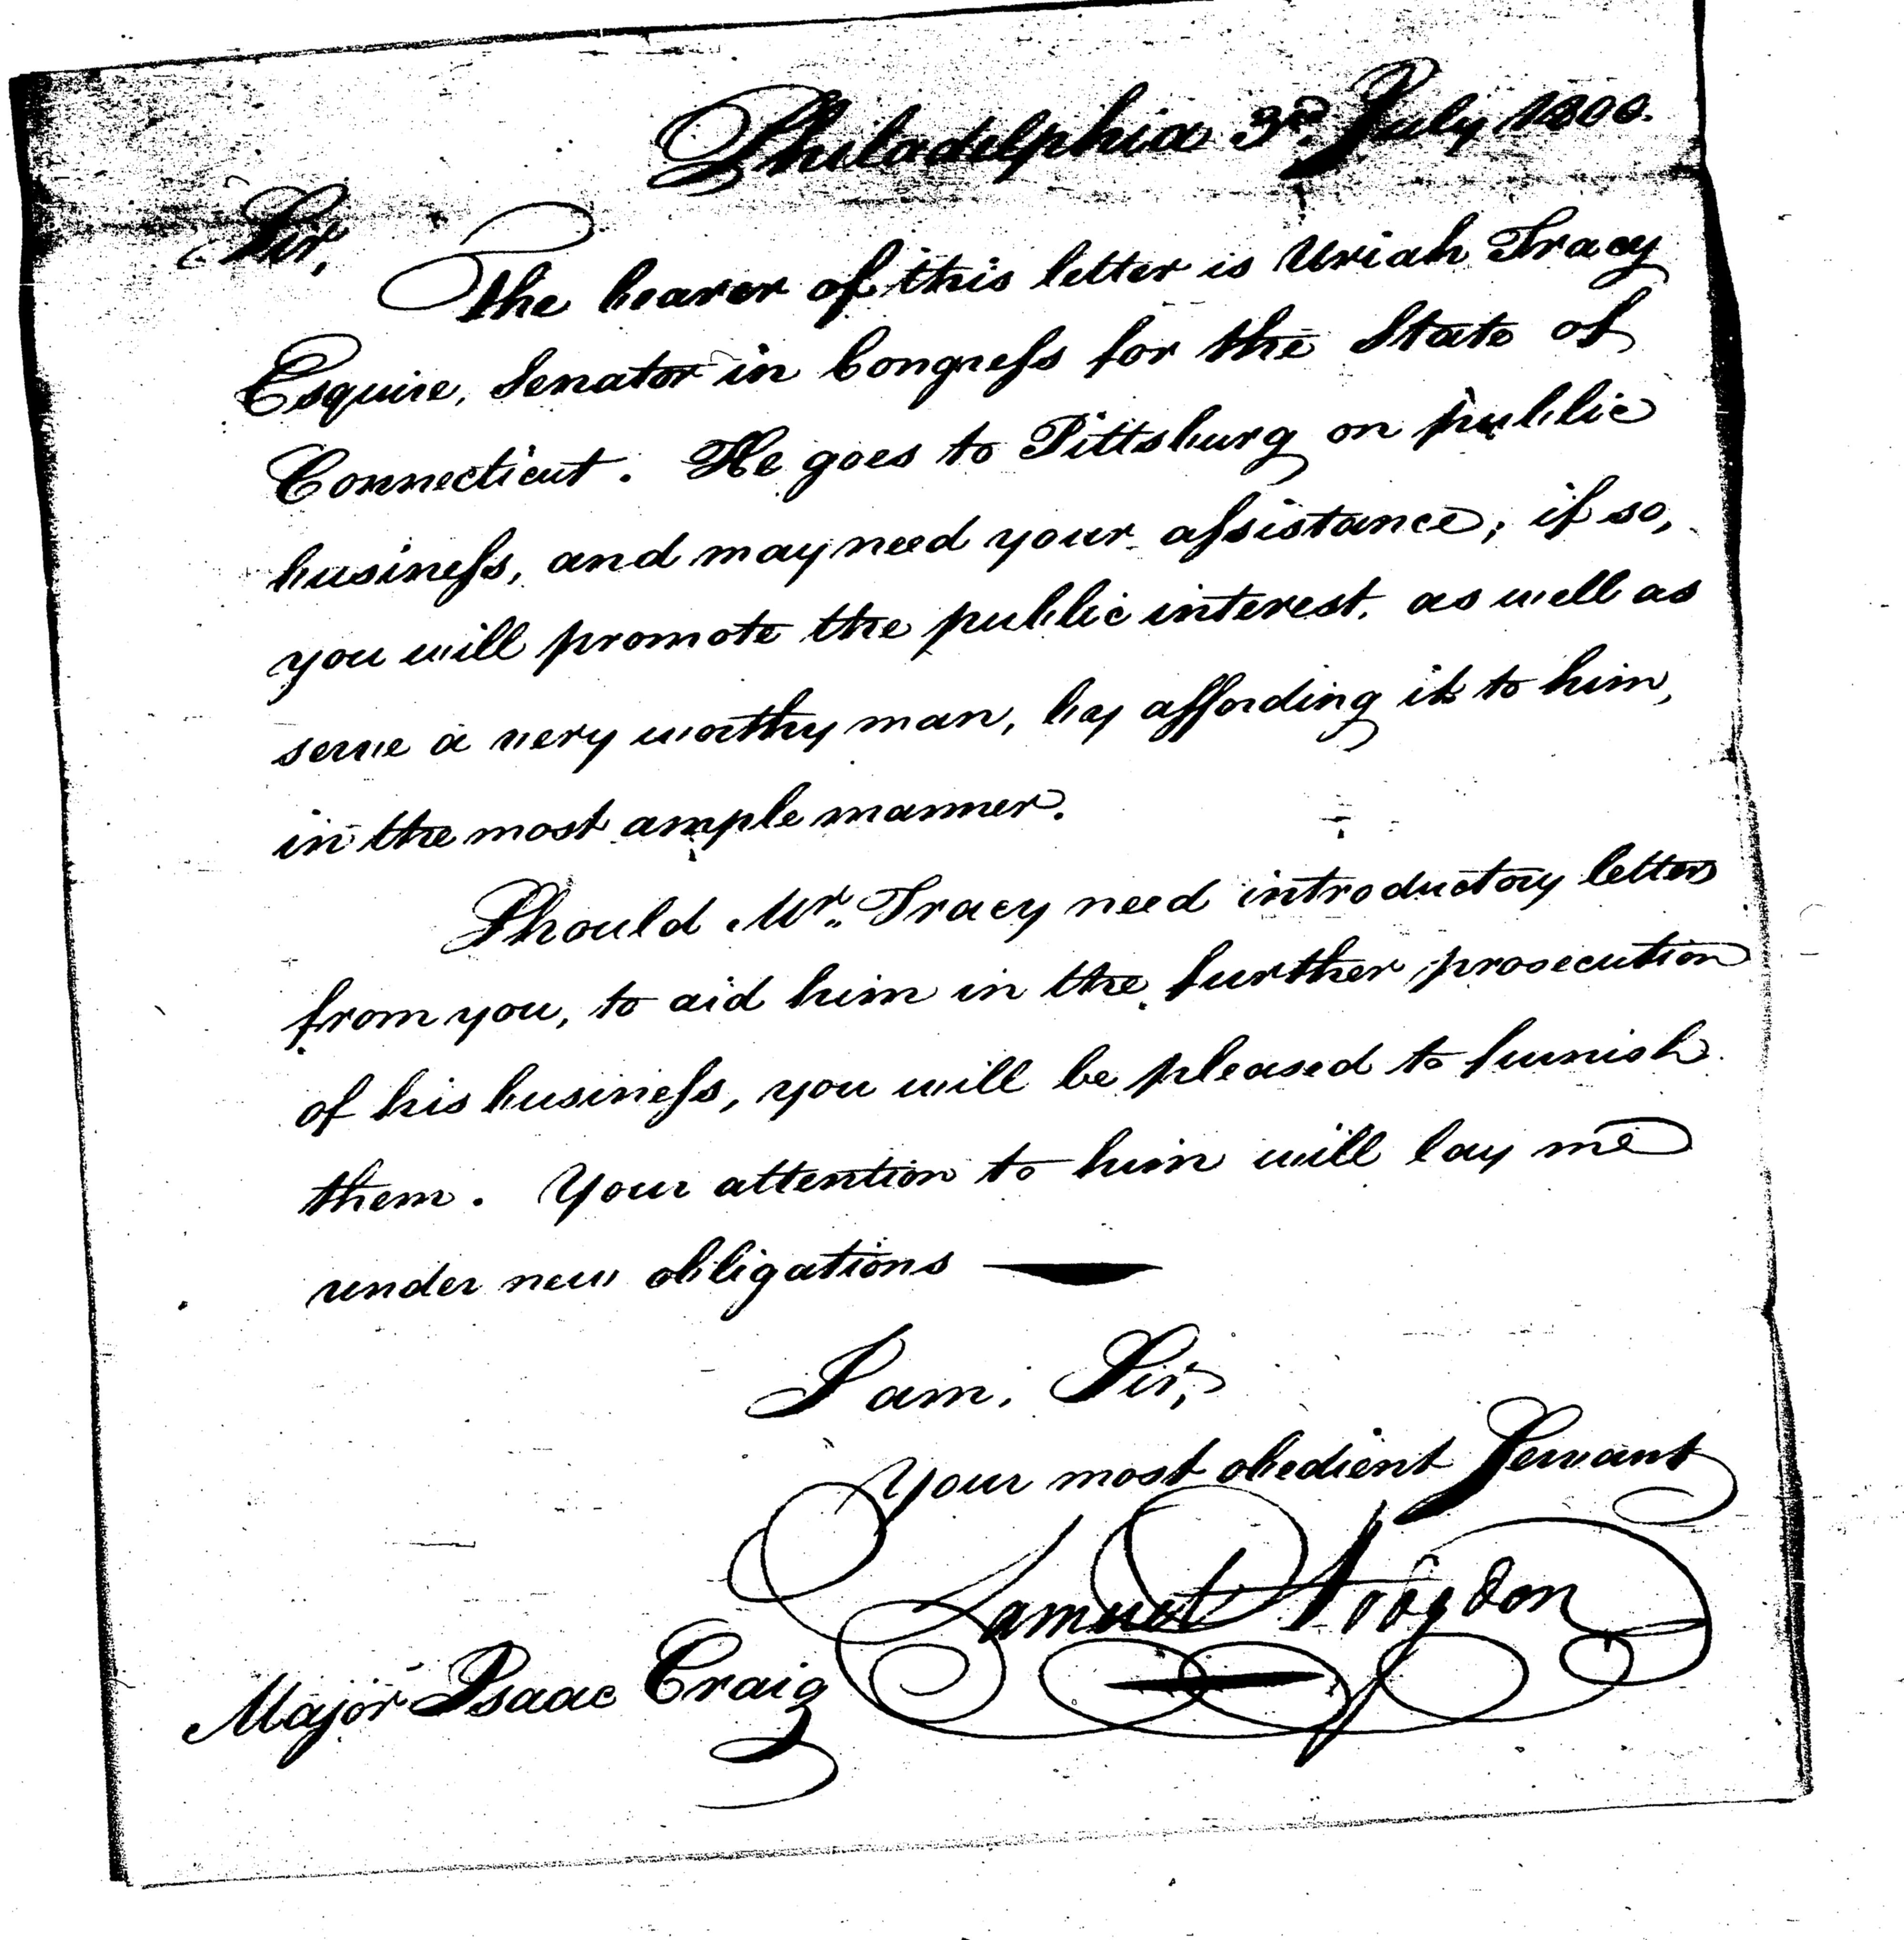 Philadelphia 3rd. July 1800.
Sir,
The bearer of this letter is Uriah Tracy
Esquire, Senator in Congreſs for the State of
Connecticut. He goes to Pittsburg on public
buſineſs, and may need your aſsistance; if so,
you will promote the public interest, as well as
serve a very worthy man, by affording it to him,
in the most ample manner.
Should Mr. Tracy need introductory letters
from you, to aid him in the further prosecution
of his busineſs, you will be pleased to furnish
them. Your attention to him will lay me
under new obligations —
I am, Sir,
Your most obedient Servant
Samuel Hodgdon
Major Isaac Craig